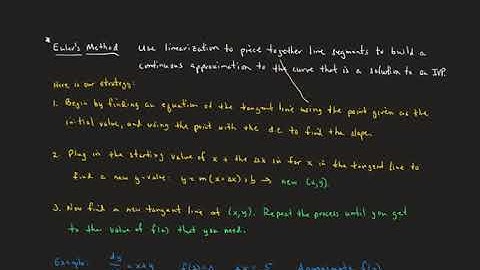 * Euler's Method Use linearization to piece together line segments to build a
continuous approximation to the curve that is a solution to an IVP.
Here is our strategy:
1. Begin by finding an equation of the tangent line using the point given as the
initial value, and using the point with the d.e to find the slope.
2. Plug in the starting value of x + the Δx in for x in the tangent line to
find a new y-value: y = m(x+Δx)+b → new (x,y).
3. Now find a new tangent line at (x,y). Repeat the process until you get
to the value of f(n) that you need.
Example: dy = x+y Δx = .5 Approximate